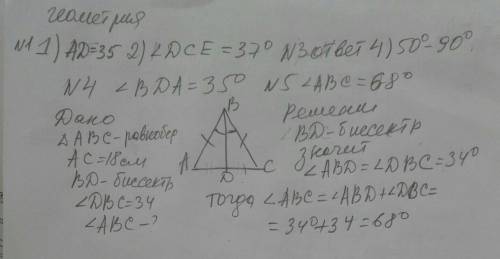 геометрия
N1 1) AD=35 2) ∠DCE=37° N3 ответ 4) 50°-90°.
N4 ∠BDA=35° N5 ∠ABC=68°
Дано
△ABC-равнобер
AC=18см
BD-биссектр
∠DBC=34
∠ABC-?
B
A
D
C
Решени
BD-биссектр
значит
∠ABD=∠DBC=34°
Тогда ∠ABC=∠ABD+∠DBC=
=34°+34=68°